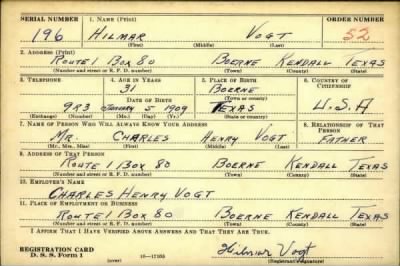 SERIAL NUMBER 1. NAME (Print) ORDER NUMBER
196 HILMAR VOGT 52
(First) (Middle) (Last)
2. ADDRESS (Print)
ROUTE 1 BOX 80 BOERNE KENDALL TEXAS
(Number and street or R. F. D. number) (Town) (County) (State)
3. TELEPHONE 4. AGE IN YEARS 5. PLACE OF BIRTH 6. COUNTRY OF CITIZENSHIP
31 BOERNE
(Town or county)
9R3 5 1909 TEXAS U.S.A
(Exchange) (Number) (Mo.) (Day) (Yr.) (State or country)
7. NAME OF PERSON WHO WILL ALWAYS KNOW YOUR ADDRESS 8. RELATIONSHIP OF THAT PERSON
MR. CHARLES HENRY VOGT FATHER
(Mr., Mrs., Miss) (First) (Middle) (Last)
9. ADDRESS OF THAT PERSON
ROUTE 1 BOX 80 BOERNE KENDALL TEXAS
(Number and street or R. F. D. number) (Town) (County) (State)
10. EMPLOYER'S NAME
CHARLES HENRY VOGT
11. PLACE OF EMPLOYMENT OR BUSINESS
ROUTE 1 BOX 80 BOERNE KENDALL TEXAS
(Number and street or R. F. D. number) (Town) (County) (State)
I AFFIRM THAT I HAVE VERIFIED ABOVE ANSWERS AND THAT THEY ARE TRUE.
REGISTRATION CARD
D. S. S. Form 1 (over) 16—17105 Hilmar Vogt
(Registrant's signature)